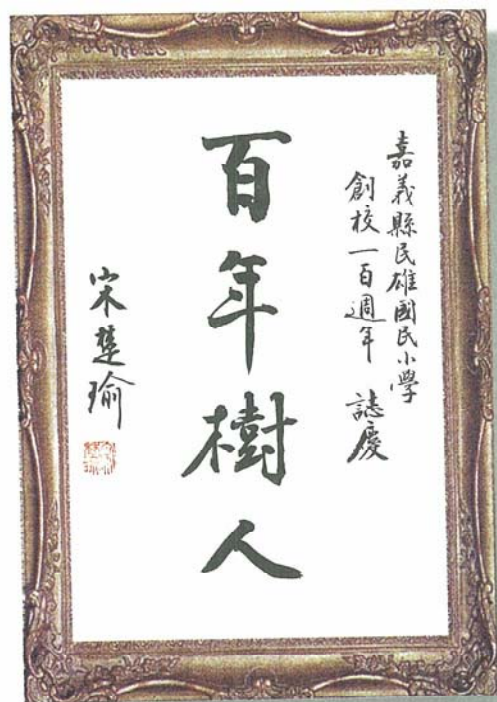 嘉義縣民雄國民小學
創校一百週年 誌慶
百年樹人
宋楚瑜